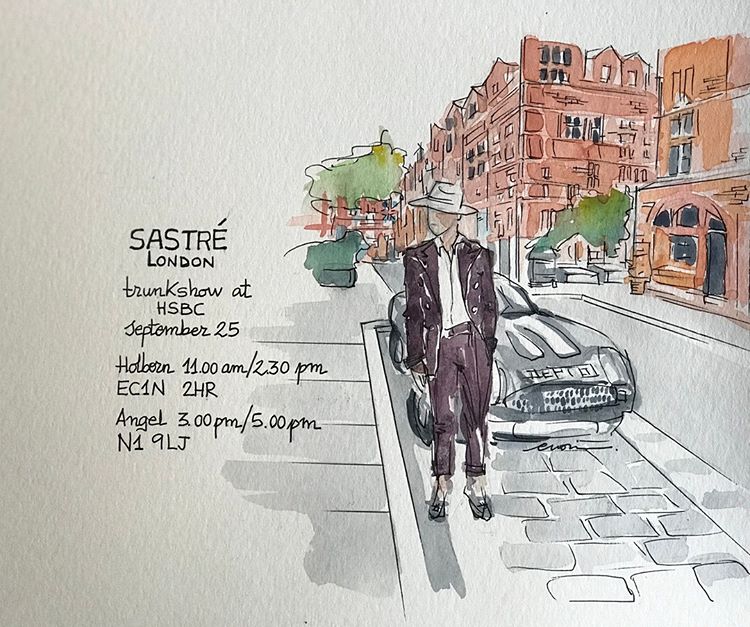 SASTRÉ
LONDON
trunkshow at
HSBC
September 25
Holborn 11.00 am/2.30 pm
EC1N 2HR
Angel 3.00pm/5.00pm
N1 9LJ